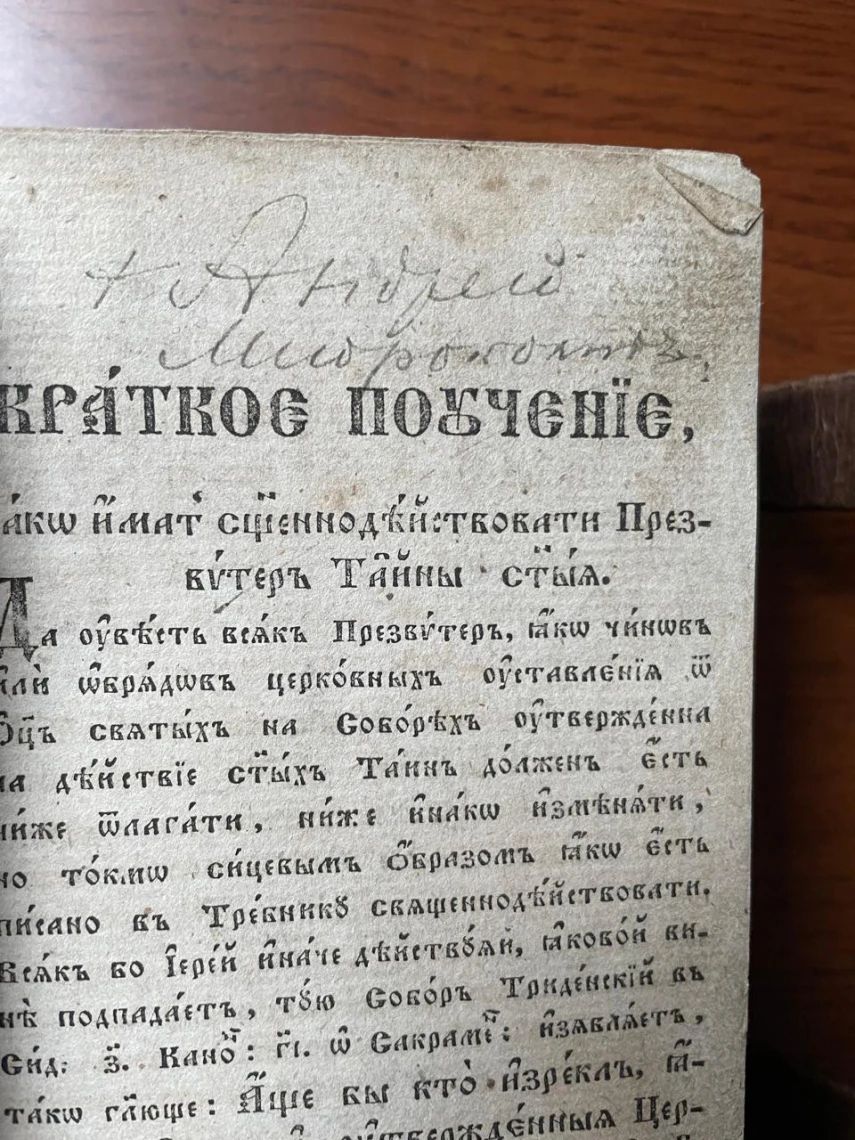 + Андрей
КРА́ТКОЕ ПОꙊЧЕНЇЕ,
а́кѡ и҆́мат̾ сщ҃еннодѣ́йствовати През-
ву́теръ Та̑йны ст҃ы́ѧ.
Да оу҆вѣ́сть всѧ́къ Презву́теръ, ꙗ҆́кѡ чи́нѡвъ
и҆лѝ ѡ҆брѧ́дѡвъ церко́вныхъ оу҆ставле́нїѧ ѿ
Ѻ҆ц҃ъ свѧты́хъ на Собо́рѣхъ оу҆твержде́нна
на дѣ́йствїе ст҃ы́хъ Та́инъ до́лженъ є҆́сть
ни́же ѿлага́ти, ни́же и҆на́кѡ и҆змѣнѧ́ти,
но то́кмѡ си́цевымъ ѻ҆́бразомъ ꙗ҆́кѡ є҆́сть
пи́сано въ Тре́бникꙋ свѧщеннодѣ́йствовати.
Всѧ́къ бо І҆ере́й и҆на́че дѣ́йствꙋѧй, ꙗ҆ково́й ви-
нѣ̀ подпада́етъ, то́ю Собо́ръ Триде́нскїй въ
Сѝд: з҃. Кано́н: г҃і. ѡ҆ Сакраме́т: и҆з̾ѧвлѧ́етъ,
та́кѡ гл҃юще: А҆́ще бы кто̀ и҆зре́клъ, ꙗ҆́-
оу҆твержде́нныѧ Цер-